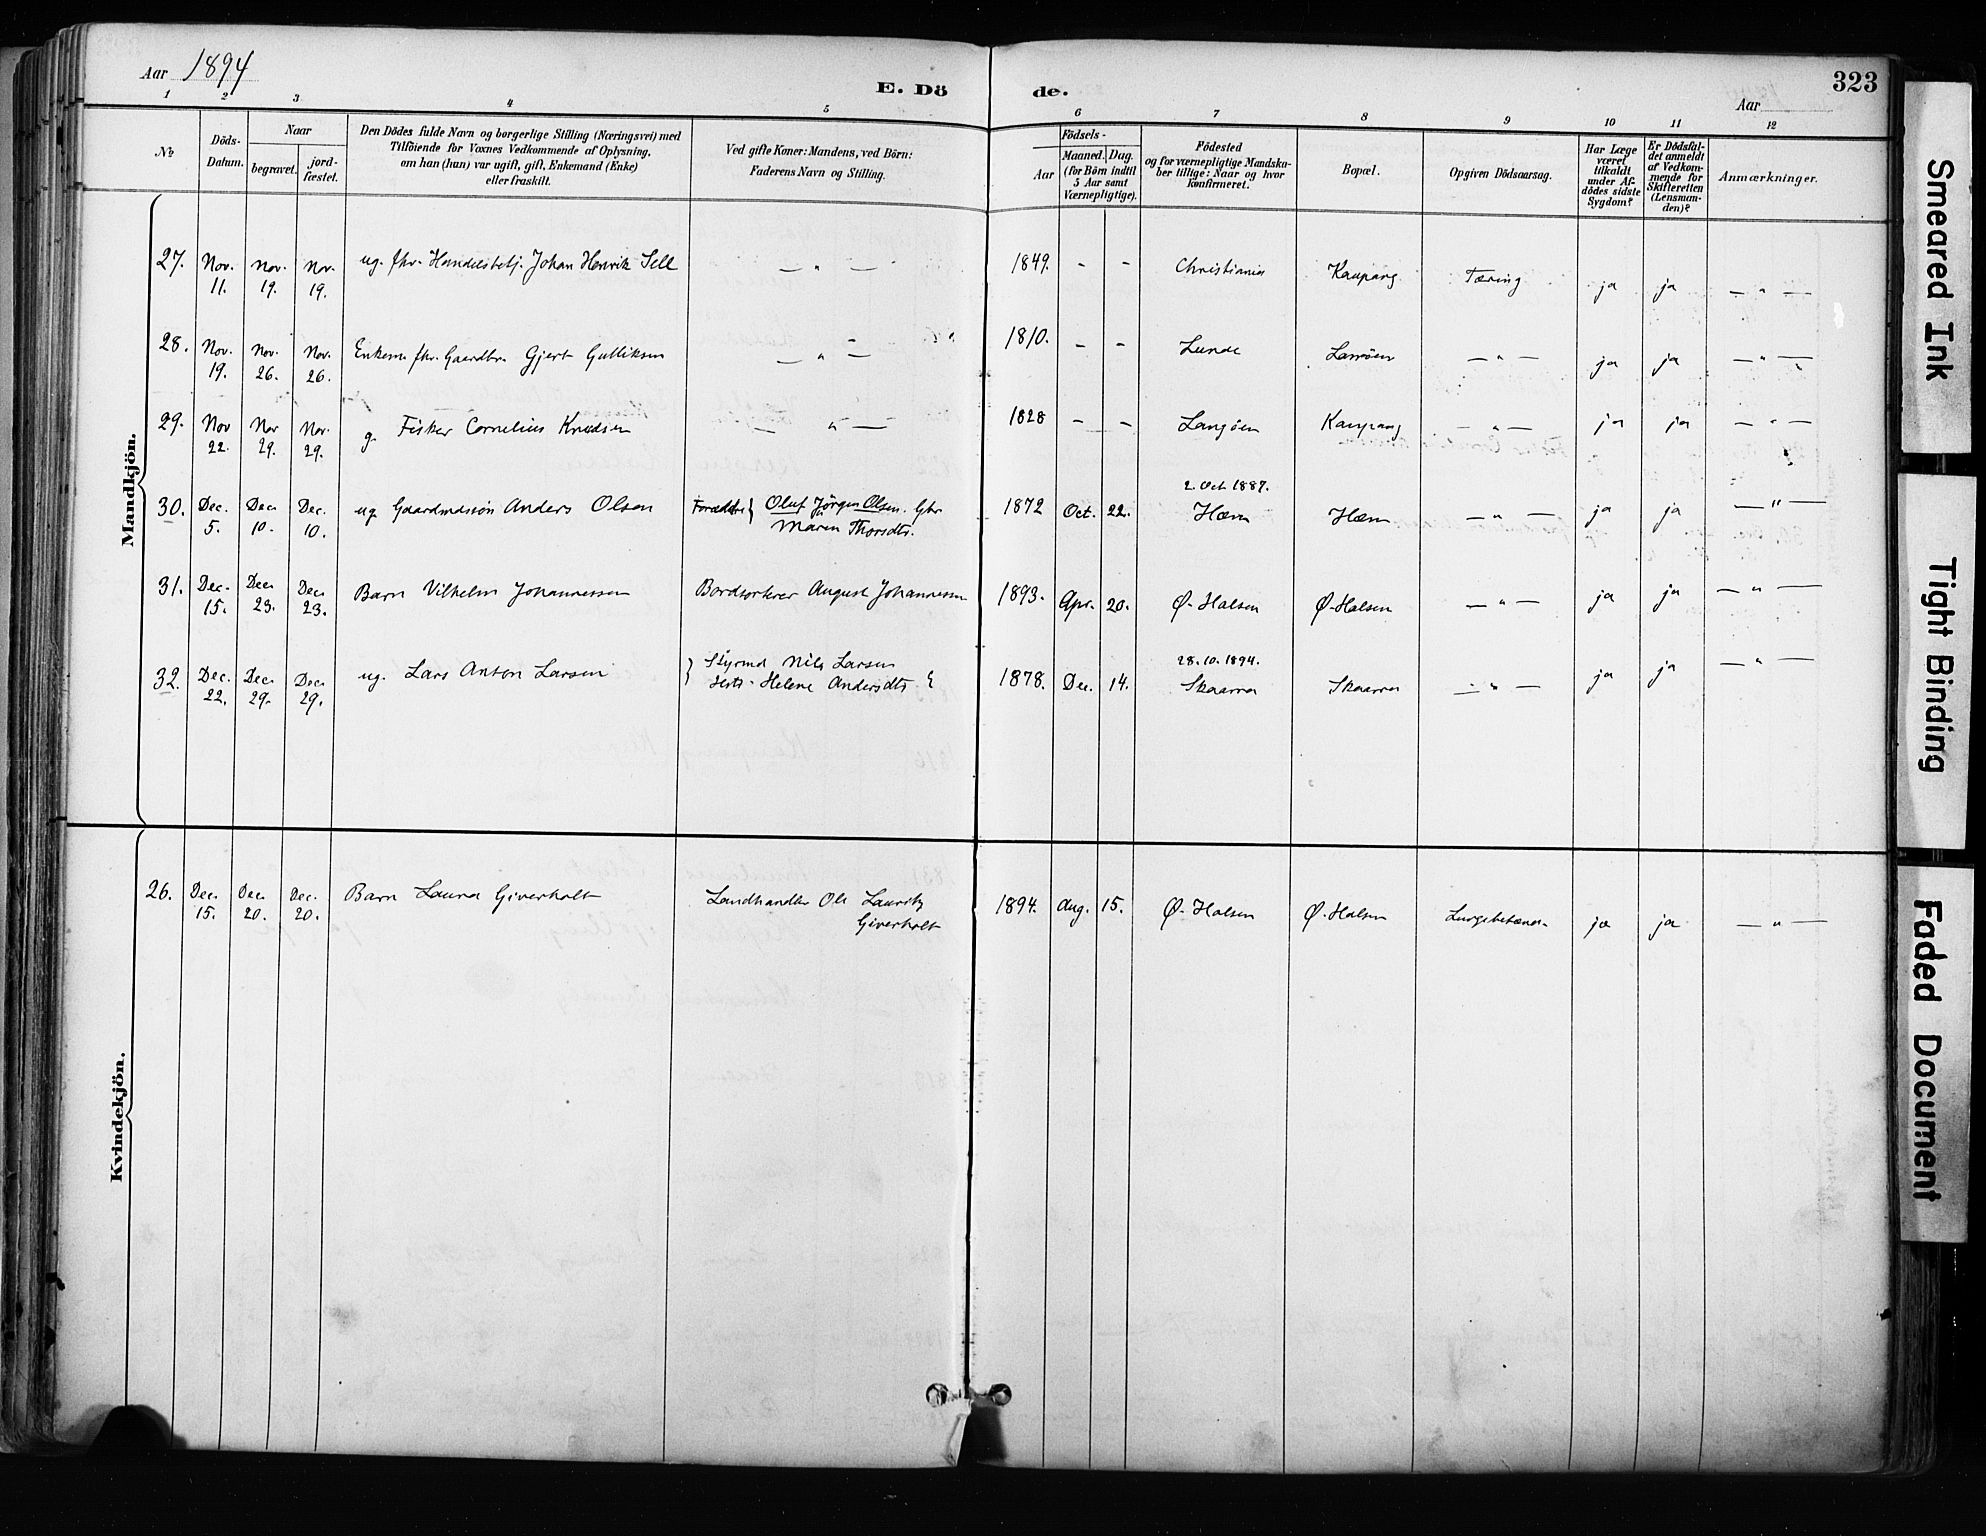 Aar 1894
E. Dö de.
Aar
323
1 2 3 4 5 6 7 8 9 10 11 12
No
Döds-
Datum.
Naar
begravet.
jord-
fæstet.
Den Dödes fulde Navn og borgerlige Stilling (Næringsvei) med
Tilföiende for Voxnes Vedkommende af Oplysning,
om han (hun) var ugift, gift, Enkemand (Enke)
eller fraskilt.
Ved gifte Koner: Mandens, ved Börn:
Faderens Navn og Stilling.
Födsels-
Aar
Maaned. Dag.
(for Börn indtil
5 Aar samt
Værnepligtige).
Födested
og for værnepligtige Mandska-
ber tillige: Naar og hvor
konfirmeret.
Bopæl.
Opgiven Dödsaarsag.
Har Læge
været
tilkaldt
under Af-
dödes sidste
Sygdom?
Er Dödsfal-
det anmeldt
af Vedkom-
mende for
Skifteretten
(Lensman-
den)?
Anmærkninger.
Mandkjön.
27. Nov. 11. Nov. 19. Nov. 19. ug. fhv. Handelsbetj. Johan Henrik Sell — " — 1849. - - Christiania Kaupang Tæring ja ja — " —
28. Nov. 19. Nov. 26. Nov. 26. Enkem. fhv. Gaardbr. Gjert Gulliksen — " — 1810. - - Lunde Lamöen — " — ja ja — " —
29. Nov 22. Nov 29. Nov. 29. g. Fisker Cornelius Knudsen — " — 1828 - - Langöen Kaupang — " — ja ja — " —
2. Oct 1887.
30. Dec. 5. Dec 10. Dec. 10. ug. Gaardmdssön Anders Olsen Forældre } Oluf Jörgen Olsen. Gbr
Maren Thorsdtr. 1872 Oct. 22. Hæm Hæm — " — ja ja — " —
31. Dec. 15. Dec 23. Dec 23. Barn Vilhelm Johannessen Bordsorterer August Johannessen 1893. Apr. 20. Ø. Halsen Ø. Halsen — " — ja ja — " —
28. 10. 1894.
32. Dec. 22. Dec 29. Dec 29. ug. Lars Anton Larsen } Styrmd Nils Larsen
Helene Andersdtr { 1878. Dec. 14. Skaarra Skaarra — " — ja ja — " —
Kvindekjön.
26. Dec. 15. Dec 20. Dec. 20. Barn Laura Giverholt Landhandler Ole Lauritz
Giverholt 1894. Aug. 15. Ø. Halsen Ø. Halsen Lungebetænd. ja ja — " —
Smeared Ink
Tight Binding
Faded Document